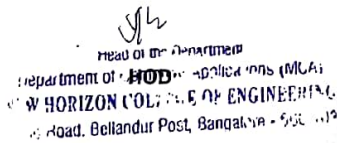 Head of the Department
Department of HOD Applications (MCA)
W HORIZON COLLEGE OF ENGINEERING
Road, Bellandur Post, Bangalore -